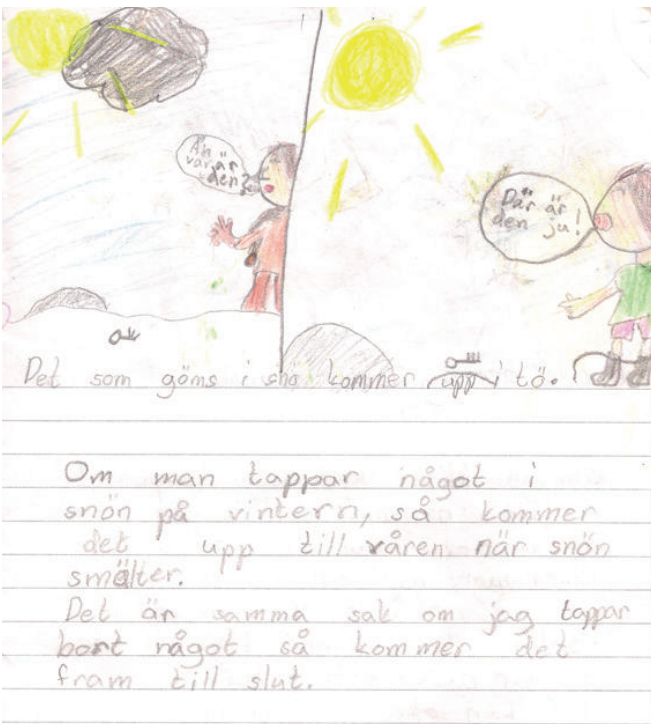 Äh
var är
den?
Där är
den ju!
Det som göms i snö kommer upp i tö.
Om man tappar något i
snön på vintern, så kommer
det upp till våren när snön
smälter.
Det är samma sak om jag tappar
bort något så kommer det
fram till slut.